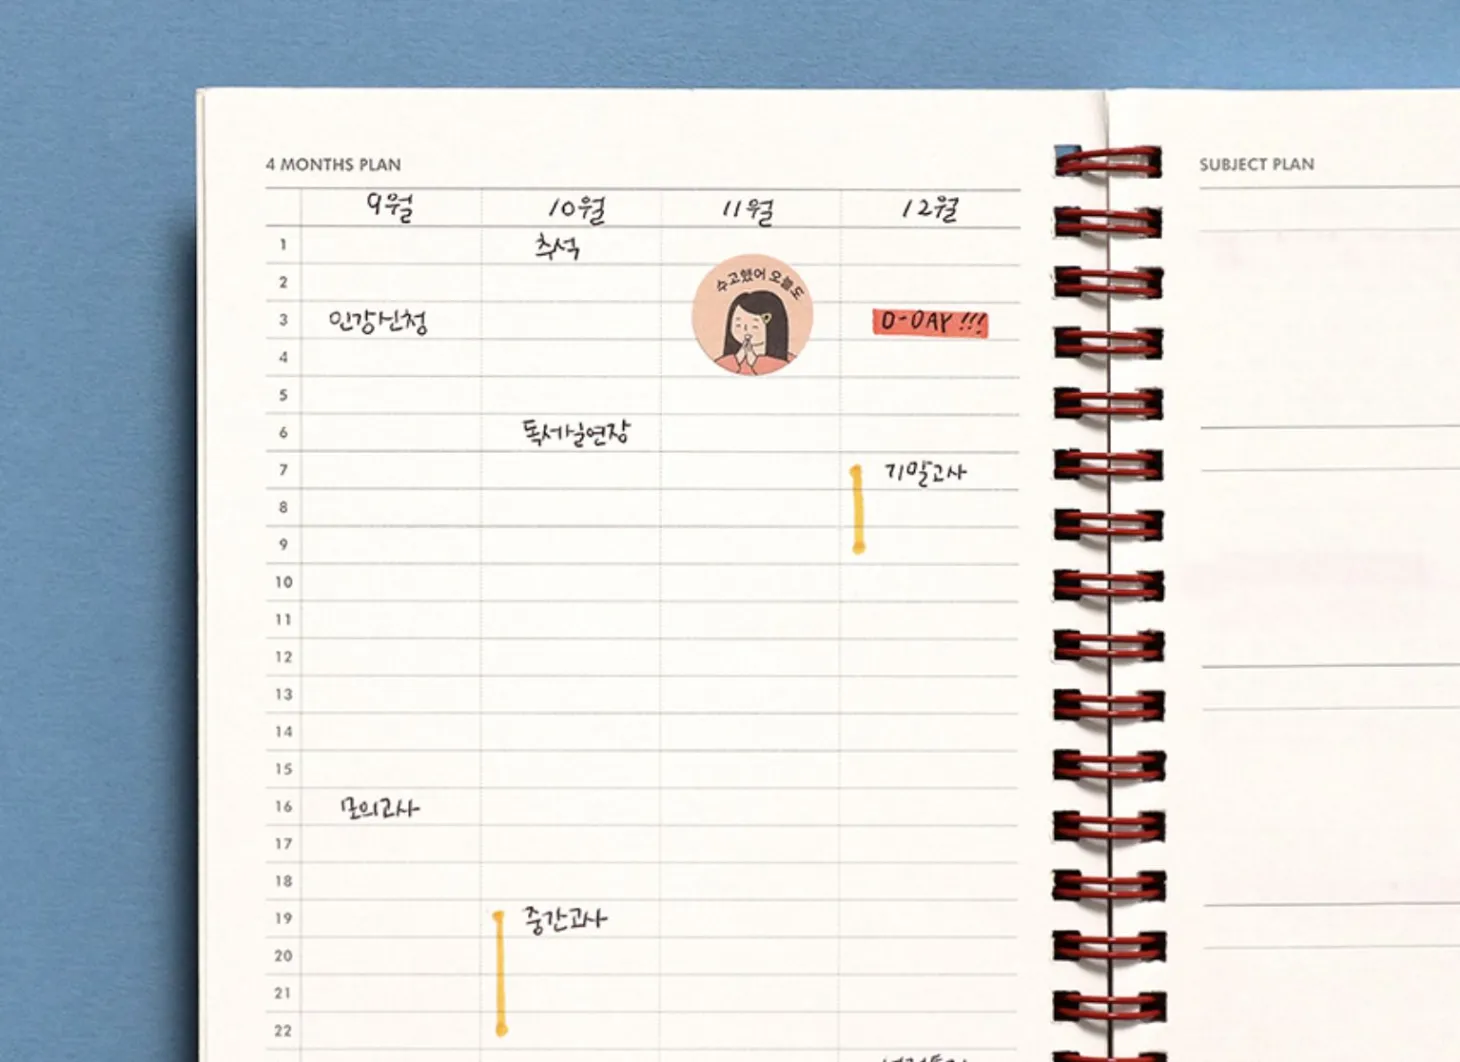 4 MONTHS PLAN
SUBJECT PLAN
9월 10월 11월 12월
1 추석
2 수고했어 오늘도
3 인강신청 D-DAY !!!
4
5
6 독서실연장
7 기말고사
8
9
10
11
12
13
14
15
16 모의고사
17
18
19 중간고사
20
21
22